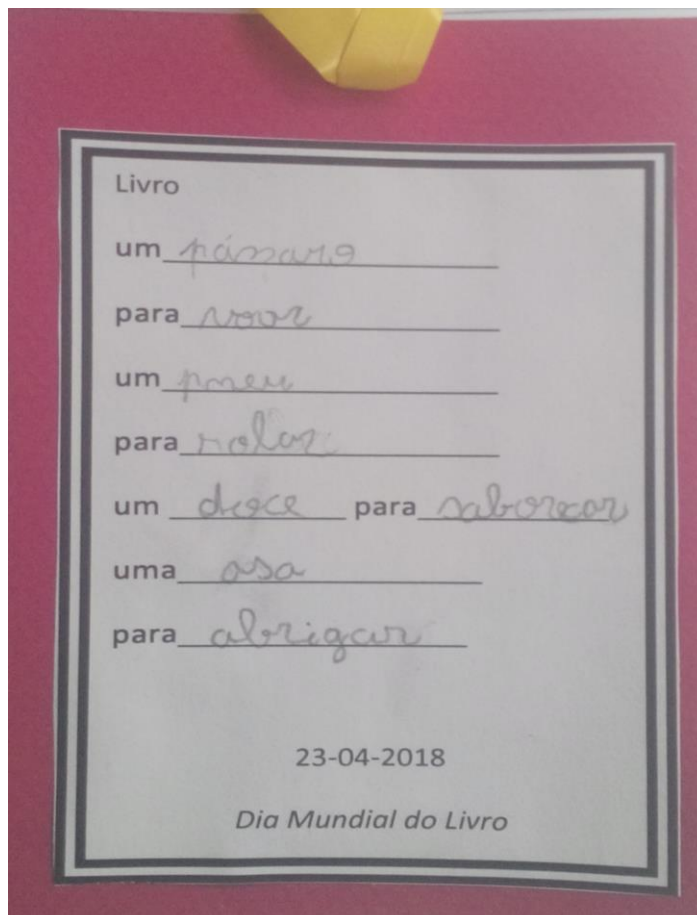 Livro
um pássaro
para voar
um pneu
para rolar
um doce para saborear
uma asa
para abrigar
23-04-2018
Dia Mundial do Livro